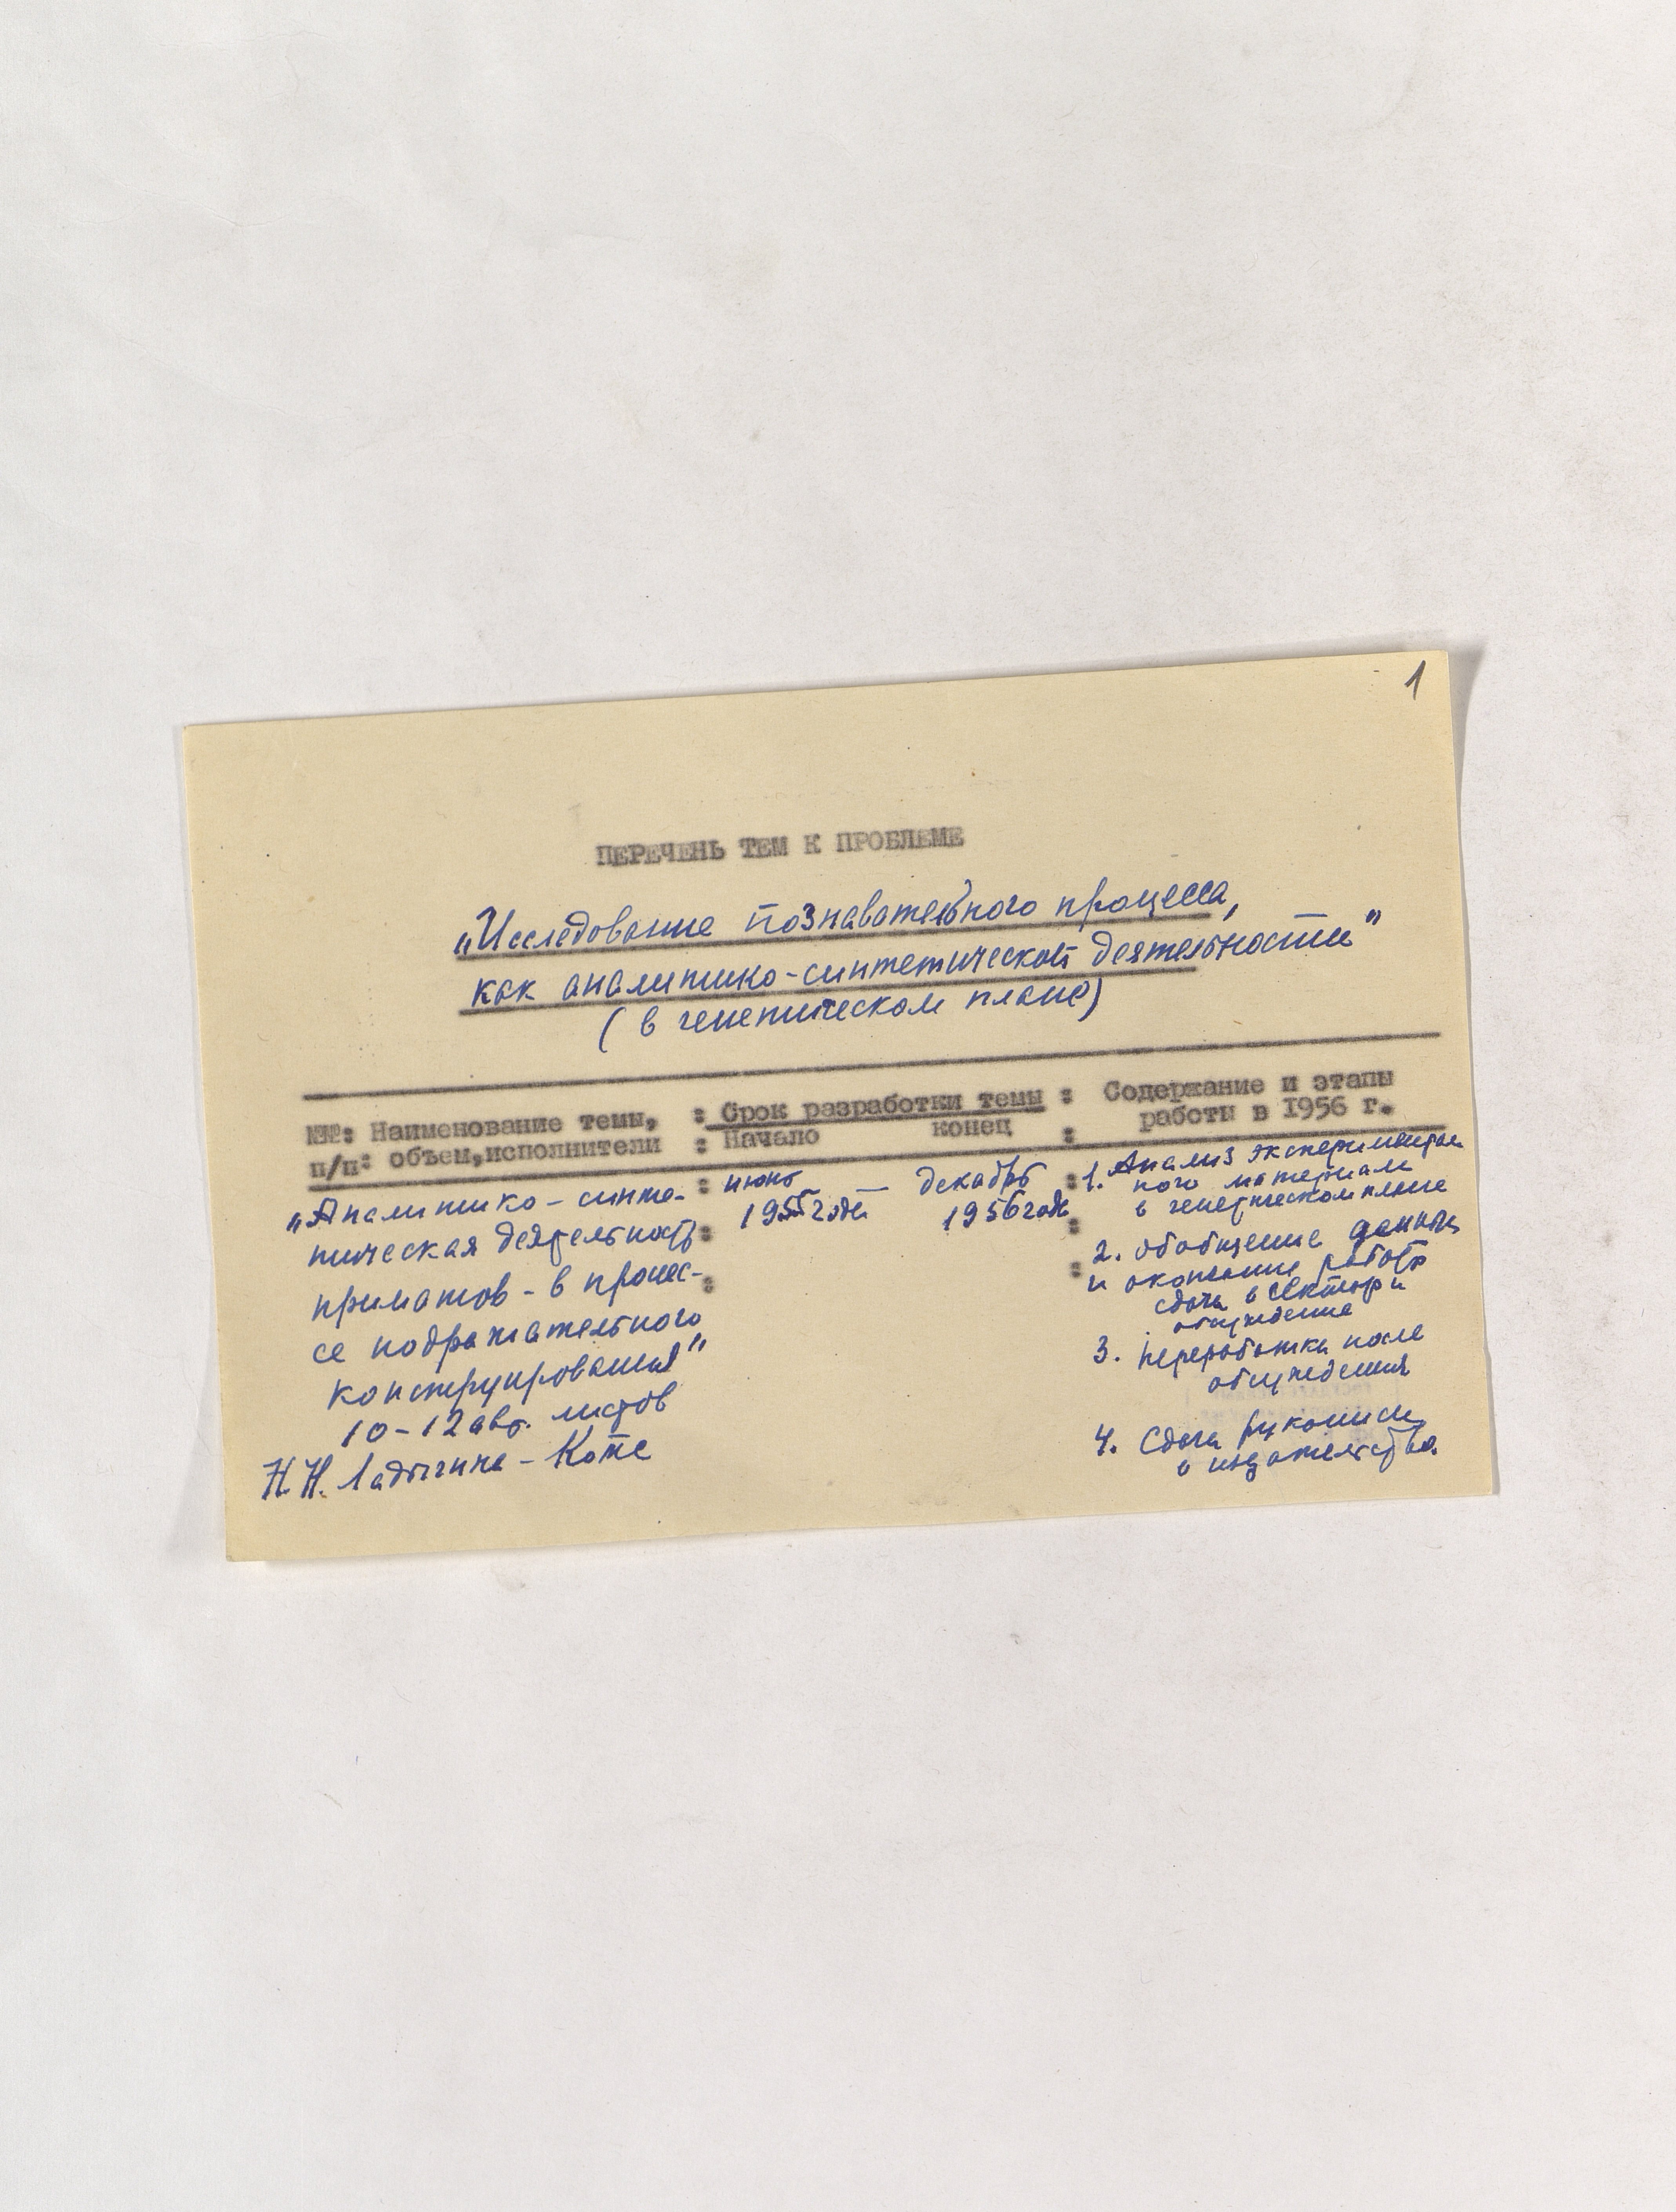 1
ПЕРЕЧЕНЬ ТЕМ К ПРОБЛЕМЕ
„Исследование познавательного процесса,
как аналитико-синтетической деятельности"
( в генетическом плане)
№№: Наименование темы, : Срок разработки темы : Содержание и этапы
п/п: объем,исполнители : Начало конец : работы в 1956 г.
„Аналитико-синте-
тическая деятельность
приматов - в процес-
се подражательного
конструирования"
10-12 авт. листов
Н.Н. Ладыгина-Котс
: июнь — декабрь :
1955 года 1956 года
1. Анализ эксперименталь
ного материала
в генетическом плане
2. Обобщение данных
и окончание работы
сдача в сектор и
обсуждение
3. Переработка после
обсуждения
4. Сдача рукописи
в издательство.